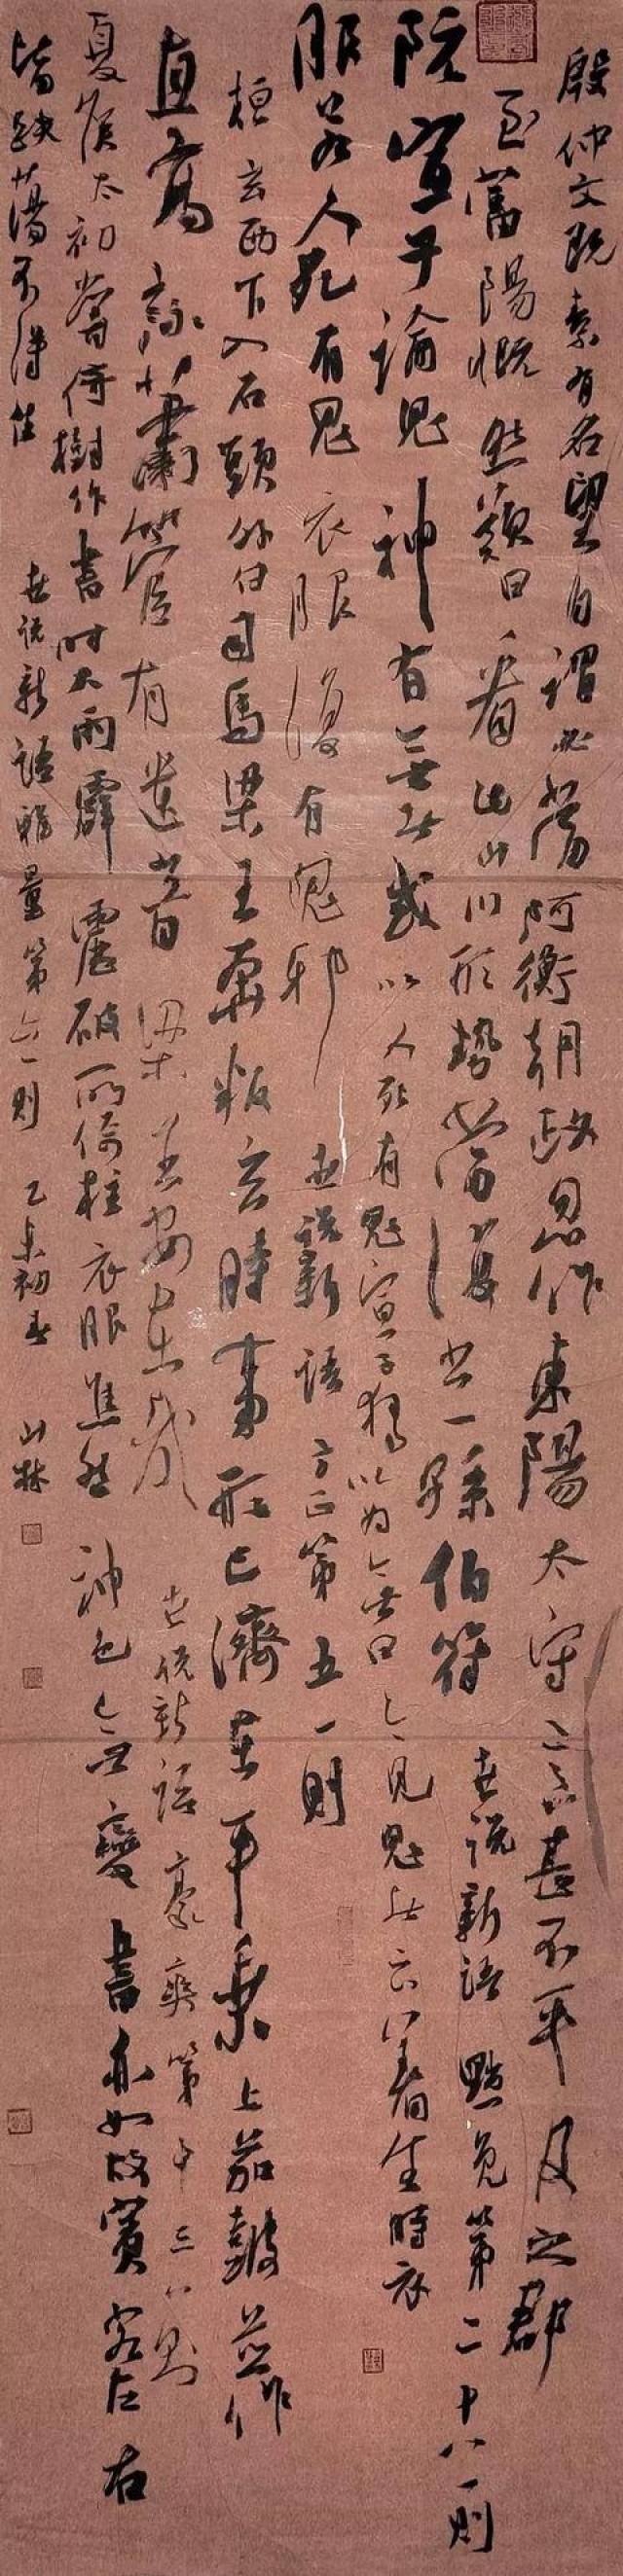 殷仲文既素有名望自謂必當阿衡朝政忽作東陽太守意甚不平及之郡
至富陽慨然歎曰看此山川形勢當復出一孫伯符 世說新語黜免第二十八一則
阮宣子論鬼神有無者或以人死有鬼宣子獨以為無曰今見鬼者云著生時衣
服若人死有鬼衣服復有鬼邪 世說新語方正第五一則
桓玄西下入石頭外白司馬梁王奔叛玄時事形已濟在平乘上笳鼓並作
直高詠云簫管有遺音梁王安在哉 世說新語豪爽第十三一則
夏侯太初嘗倚樹作書時大雨霹靂破所倚柱衣服焦然神色無變書亦如故賓客左右
皆跌蕩不得住 世說新語雅量第六一則 乙未初春 山林